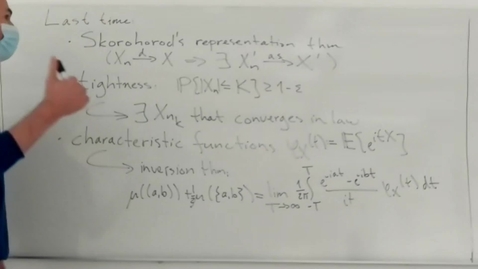 Last time:
· Skorohorod's representation thm
(Xₙ →ᵈ X ⇝ ∃ Xₙ' →ᵃˢ X')
tightness: P{|Xₙ| ≤ K} ≥ 1-ε
↪ ∃ Xₙₖ that converges in law
· characteristic functions φₓ(t) = E{e^{itX}}
↪ inversion thm:
μ((a,b)) + ½μ({a,b}) = lim_{T→∞} 1/2π ∫_{-T}^{T} (e^{-iat} - e^{-ibt})/it φₓ(t) dt